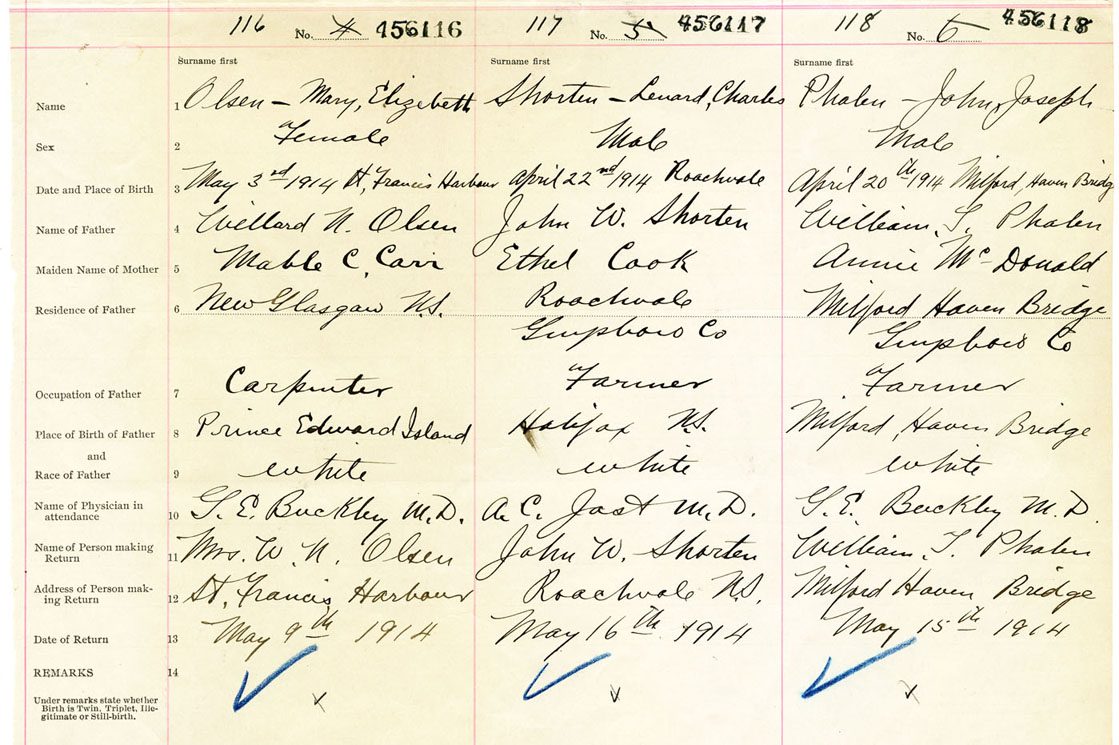 116 No. 4 456116 117 No. 5 456117 118 No. 6 456118
Surname first Surname first Surname first
Name 1 Olsen – Mary, Elizebeth Shorten – Lenard, Charles Phalen – John, Joseph
Sex 2 Female Male Male
Date and Place of Birth 3 May 3rd 1914 St, Francis Harbour April 22nd 1914 Roachvale April 20th 1914 Milford Haven Bridg
Name of Father 4 Willard N. Olsen John W. Shorten William, T. Phalen
Maiden Name of Mother 5 Mable C, Carr Ethel Cook Annie Mc Donald
Residence of Father 6 New Glasgaw N.S. Roachvale Milford Haven Bridge
Guysboro Co Guysboro Co
Occupation of Father 7 Carpenter Farmer Farmer
Place of Birth of Father 8 Prince Edward Island Halifax N.S. Milford, Haven Bridge
and
Race of Father 9 white white white
Name of Physician in
attendance 10 G. E. Buckley M.D. A. C. Jost M.D. G. E. Buckley M.D.
Name of Person making
Return 11 Mrs. W. N. Olsen John W. Shorten William, T. Phalen
Address of Person mak-
ing Return 12 St, Francis Harbour Roachvale N.S. Milford Haven Bridge
Date of Return 13 May 9th 1914 May 16th 1914 May 15th 1914
REMARKS 14
Under remarks state whether
Birth is Twin, Triplet, Ille-
gitimate or Still-birth.